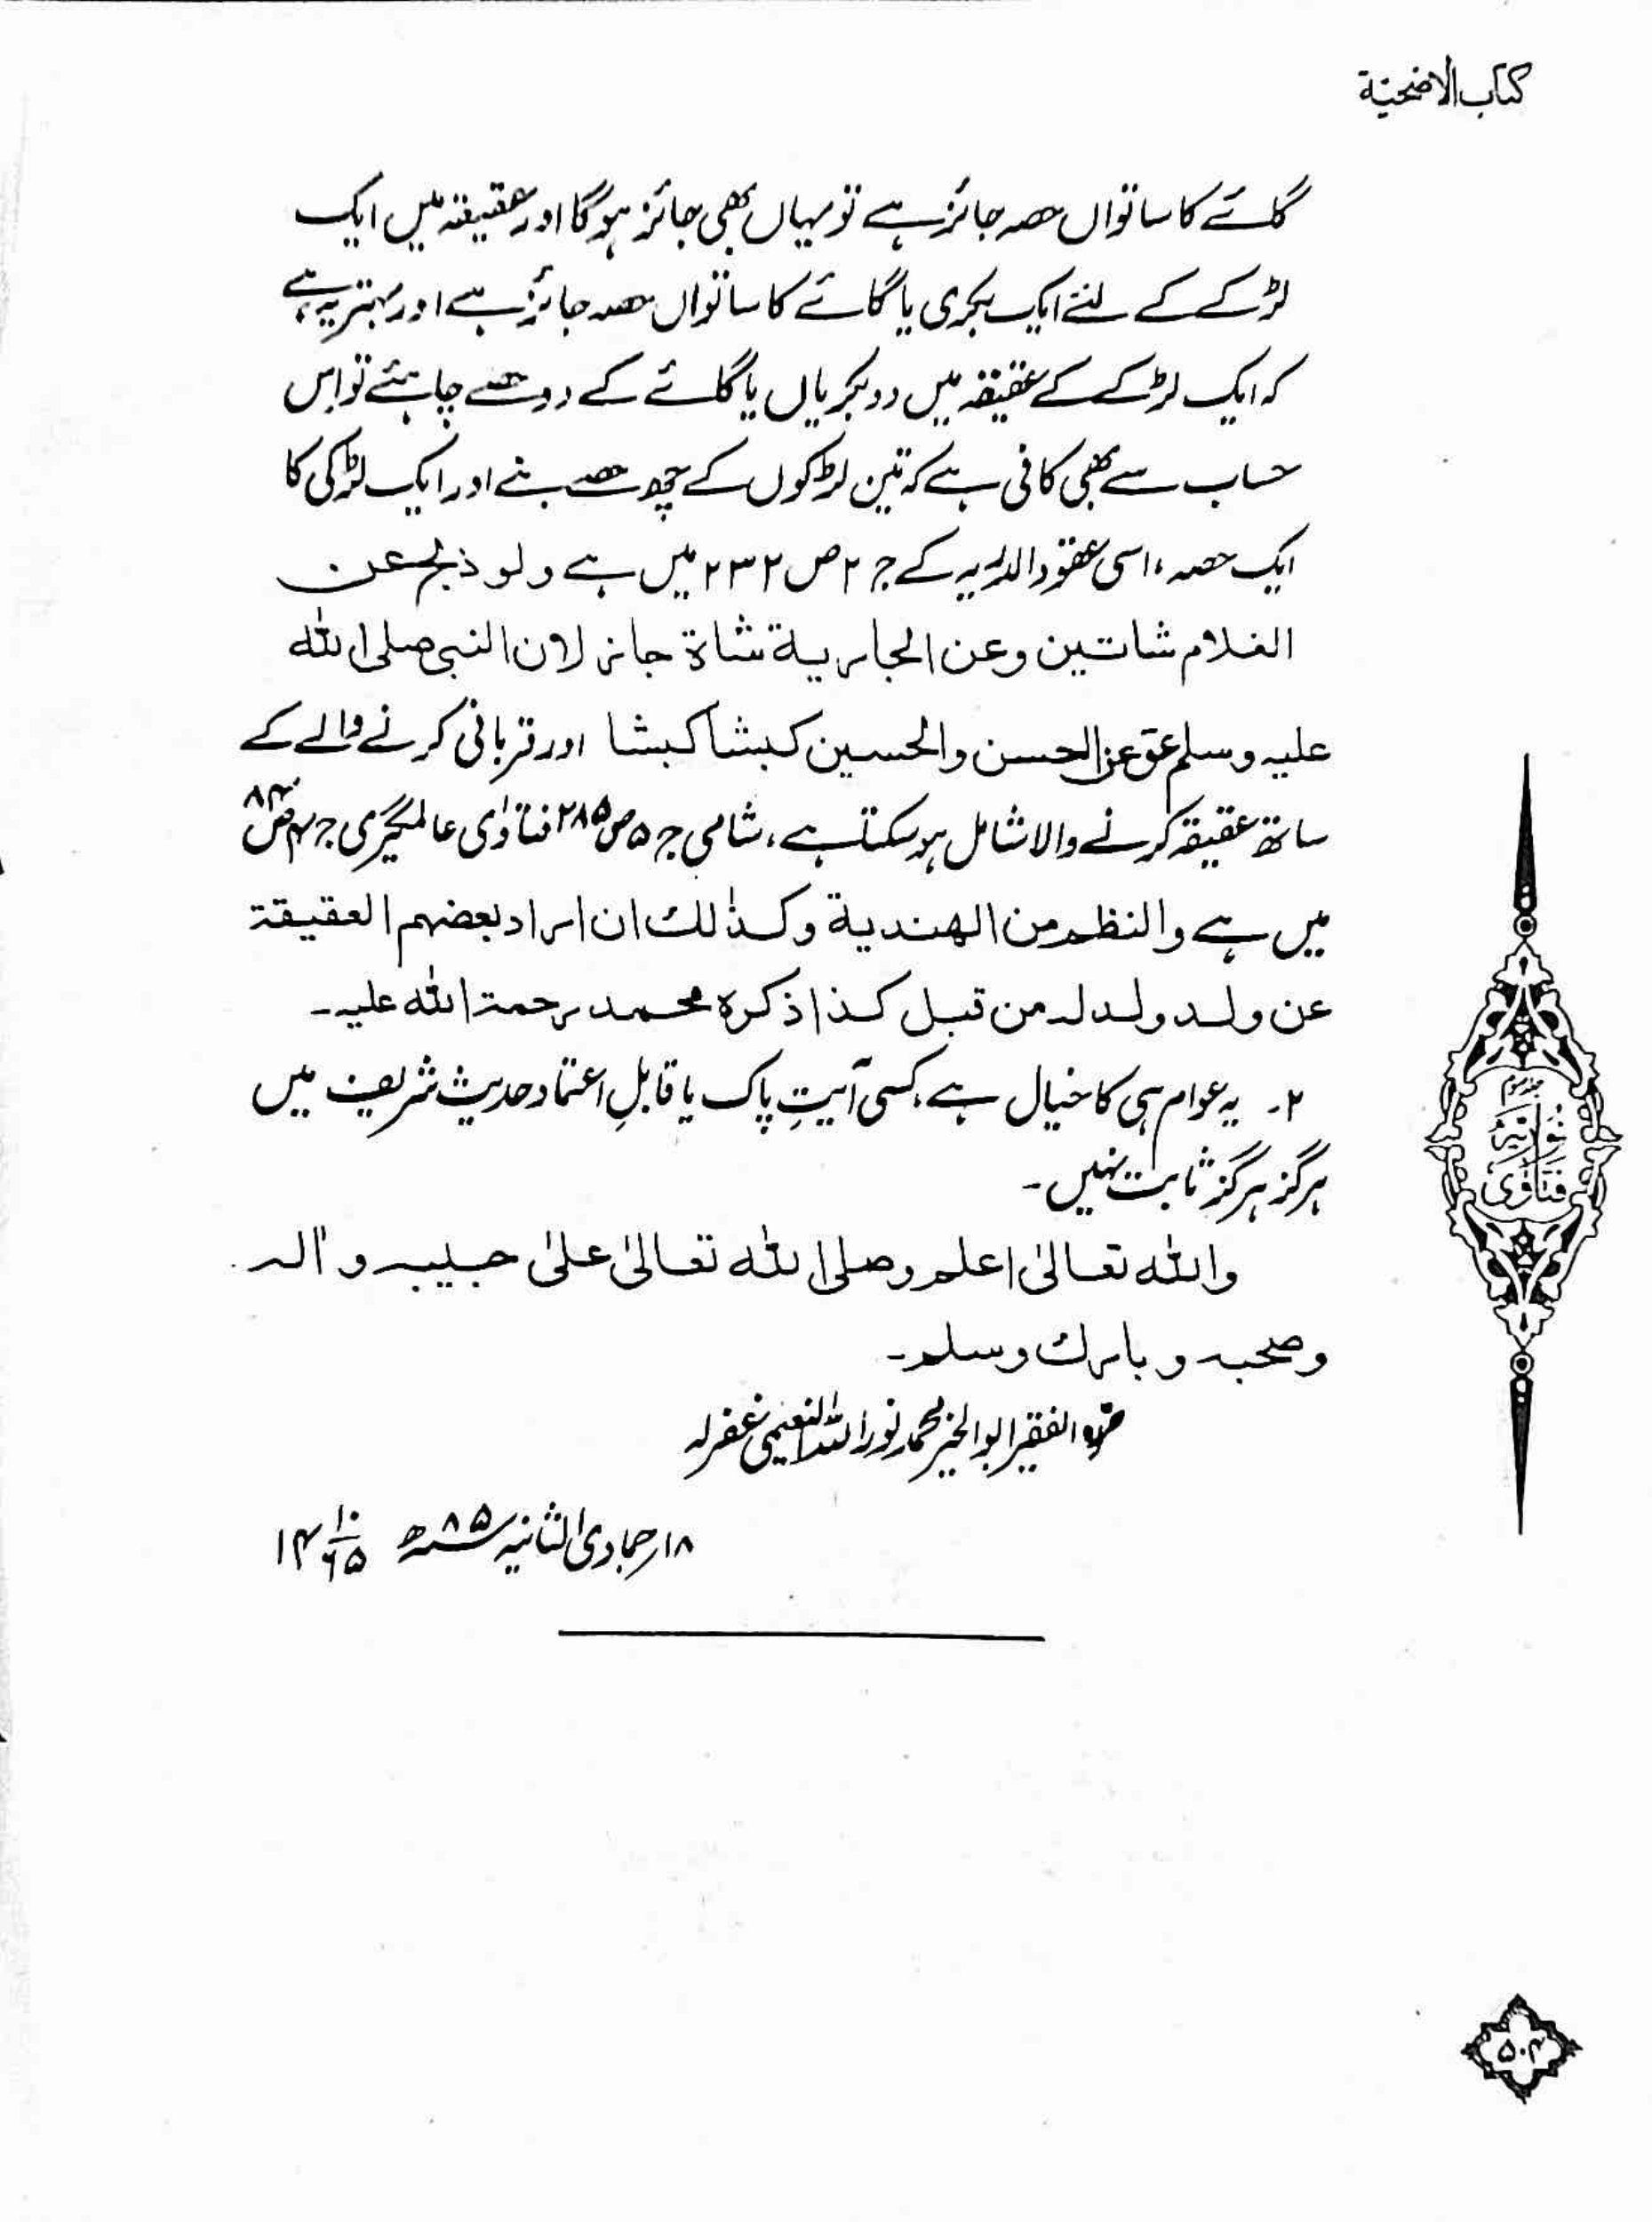 کتاب الاضحیۃ
گائے کا ساتواں حصہ جائز ہے تو یہاں بھی جائز ہوگا اور عقیقہ میں ایک
لڑکے کے لئے ایک بکری یا گائے کا ساتواں حصہ جائز ہے اور بہتر یہ ہے
کہ ایک لڑکے کے عقیقہ میں دو بکریاں یا گائے کے دو حصے چاہئے تو اس
حساب سے بھی کافی ہے کہ تین لڑکوں کے چھ حصے بنے اور ایک لڑکی کا
ایک حصہ، اسی عقود الدریہ کے ج ۲ ص ۲۳۲ میں ہے ولو ذبح عن
الغلام شاتین وعن الجاریۃ شاۃ جاز لان النبی صلی اللہ
علیہ وسلم عق عن الحسن والحسین کبشاً کبشا اور قربانی کرنے والے کے
ساتھ عقیقہ کرنے والا شامل ہو سکتا ہے، شامی ج ۵ ص ۲۸۵ فتاوٰی عالمگیری ج ۴ ص ۸۴
میں ہے والنظم من الھندیۃ وکذٰلک ان اراد بعضہم العقیقۃ
عن ولد ولد لہ من قبل کذا ذکرہ محمد رحمۃ اللہ علیہ۔
۲۔ یہ عوام ہی کا خیال ہے، کسی آیتِ پاک یا قابلِ اعتماد حدیث شریف میں
ہرگز ہرگز ثابت نہیں۔
واللہ تعالیٰ اعلم وصلی اللہ تعالیٰ علیٰ حبیبہ واٰلہ
وصحبہ وبارک وسلم۔
حررہ الفقیر ابوالخیر محمد نور اللہ النعیمی غفرلہ
۱۸ جمادی الثانیہ ۸۵ھ ۱۴/۱۰/۶۵
جلد سوم
فتاوٰی نوریہ
۵۰۴